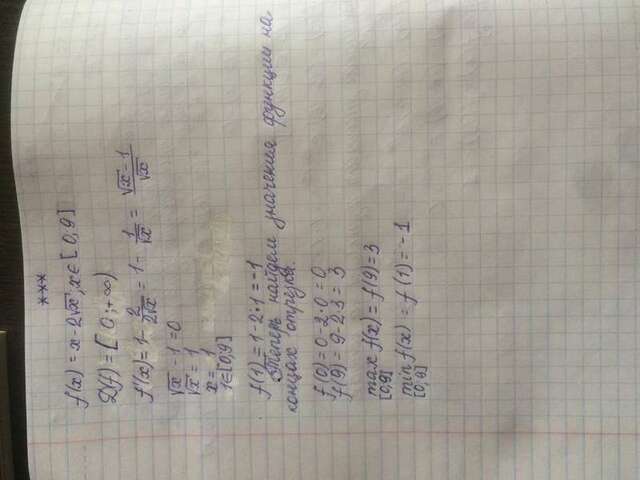 ***
f(x) = x - 2√x, x ∈ [0; 9]
D(f) = [0; +∞)
f'(x) = 1 - 2/(2√x) = 1 - 1/√x = (√x - 1)/√x
√x - 1 = 0
√x = 1
x = 1
1 ∈ [0; 9]
f(1) = 1 - 2·1 = -1
Теперь найдем значения функции на
концах отрезка.
f(0) = 0 - 2·0 = 0
f(9) = 9 - 2·3 = 3
max f(x) = f(9) = 3
[0; 9]
min f(x) = f(1) = -1
[0; 9]